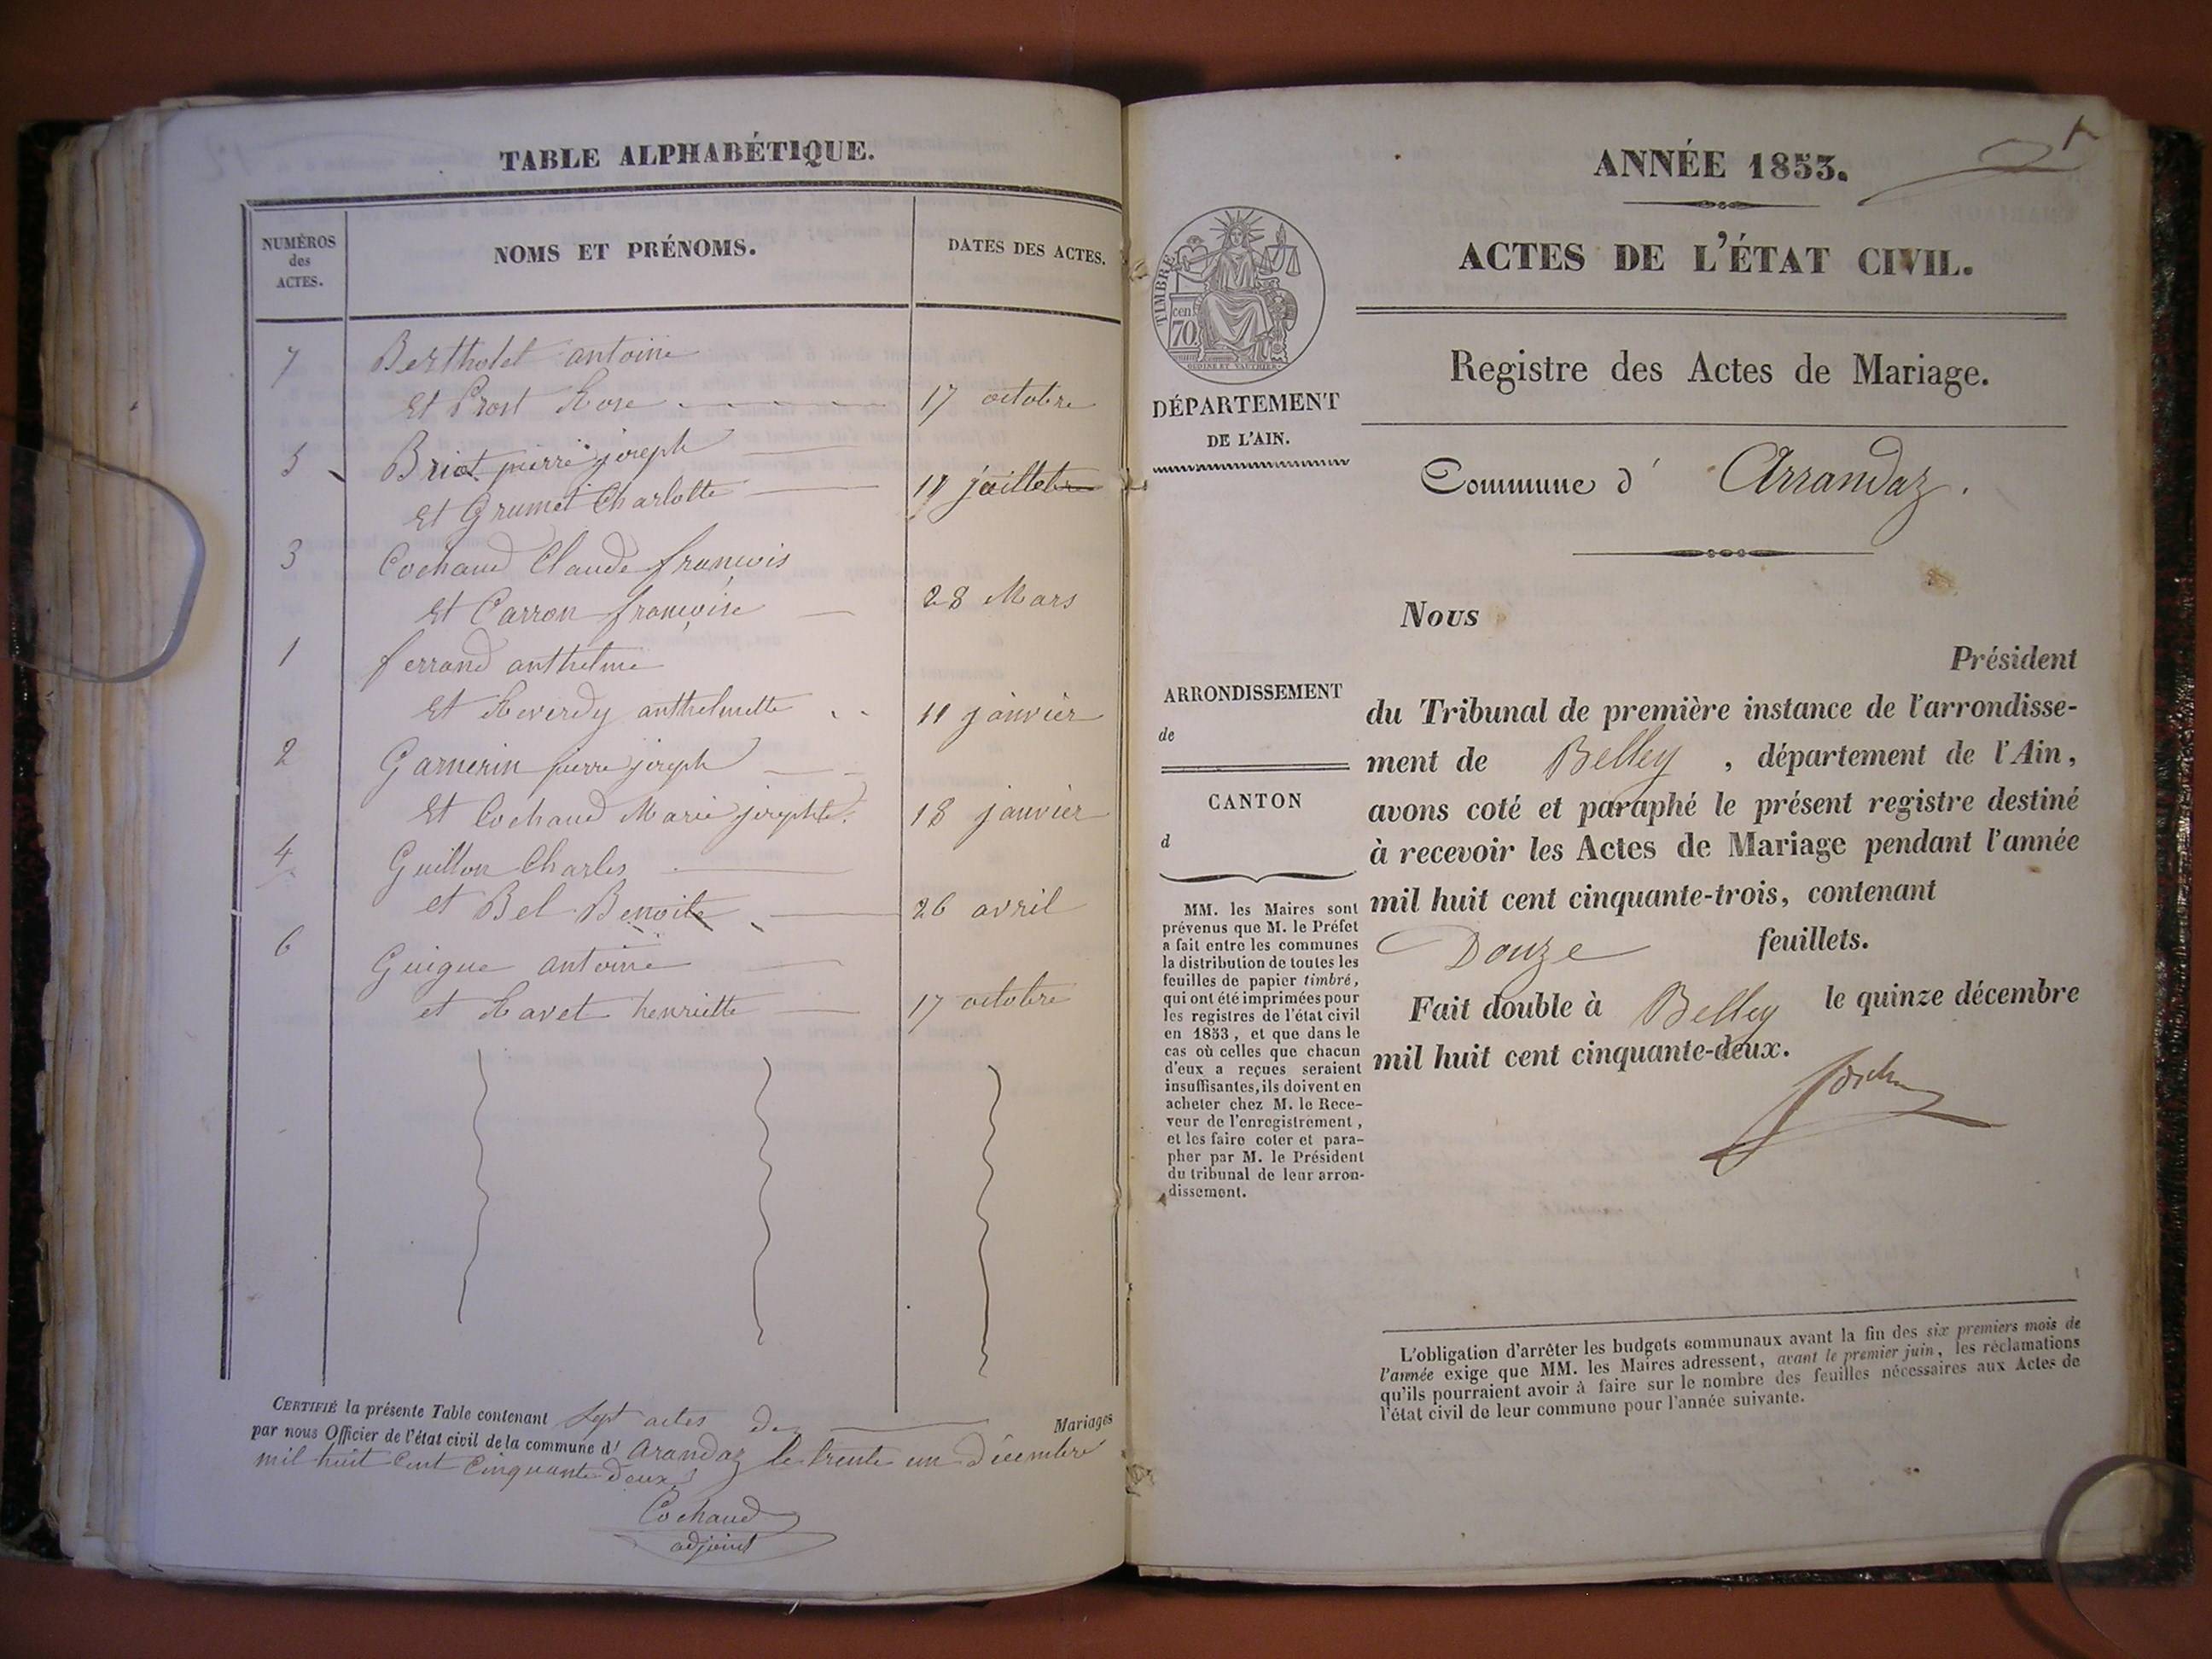 TABLE ALPHABÉTIQUE.
NUMÉROS
des
ACTES.
NOMS ET PRÉNOMS.
DATES DES ACTES.
7 Bertholet antoine
Et Prost Rose 17 octobre
5 Briot pierre joseph
et Grumet Charlotte juillet
3 Cochaud Claude françois
et Carron françoise 28 Mars
1 ferrand anthelme
et Reverdy anthelmette 11 janvier
2 Garnerin pierre joseph
et Cochaud Marie josephte 18 janvier
4 Guillon Charles
et Bel Benoite 26 avril
6 Guigue antoine
et Ravet henriette 17 octobre
CERTIFIÉ la présente Table contenant Sept actes de Mariages
par nous Officier de l'état civil de la commune d' Arandaz le trente un Décembre
mil huit Cent Cinquante Deux
Cochaud
adjoint
1
ANNÉE 1853.
ACTES DE L'ÉTAT CIVIL.
TIMBRE
cen.
70
OUDINE ET VAUTHIER
Registre des Actes de Mariage.
DÉPARTEMENT
DE L'AIN.
Commune d' Arrandaz.
Nous
Président
ARRONDISSEMENT
de
CANTON
d
du Tribunal de première instance de l'arrondisse-
ment de Belley, département de l'Ain,
avons coté et paraphé le présent registre destiné
à recevoir les Actes de Mariage pendant l'année
mil huit cent cinquante-trois, contenant
Douze feuillets.
Fait double à Belley le quinze décembre
mil huit cent cinquante-deux.
MM. les Maires sont
prévenus que M. le Préfet
a fait entre les communes
la distribution de toutes les
feuilles de papier timbré,
qui ont été imprimées pour
les registres de l'état civil
en 1853, et que dans le
cas où celles que chacun
d'eux a reçues seraient
insuffisantes, ils doivent en
acheter chez M. le Rece-
veur de l'enregistrement,
et les faire coter et para-
pher par M. le Président
du tribunal de leur arron-
dissement.
L'obligation d'arrêter les budgets communaux avant la fin des six premiers mois de
l'année exige que MM. les Maires adressent, avant le premier juin, les réclamations
qu'ils pourraient avoir à faire sur le nombre des feuilles nécessaires aux Actes de
l'état civil de leur commune pour l'année suivante.